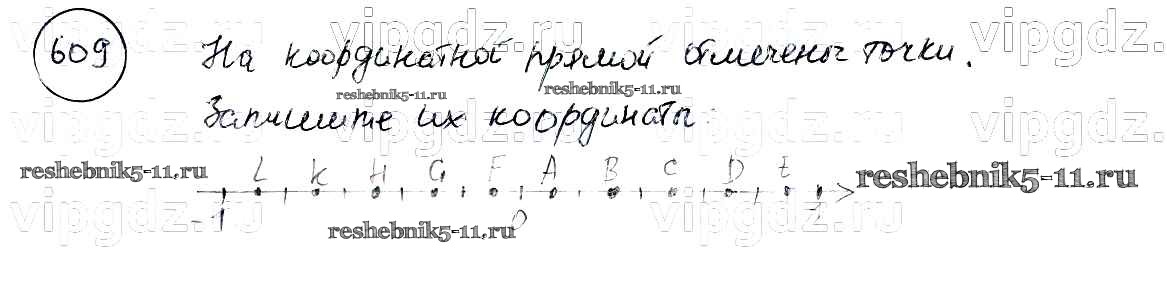 vipgdz.ru vipgdz.ru vipgdz.ru vipgdz.
609 На координатной прямой отмечены точки.
reshebnik5-11.ru reshebnik5-11.ru
Запишите их координаты:
vipgdz.ru vipgdz.ru vipgdz.ru vipgdz.
reshebnik5-11.ru L K H G F A B C D E reshebnik5-11.ru
-1 0 1
vipgdz.ru vipgdz.ru vipgdz.ru vipgdz.
reshebnik5-11.ru